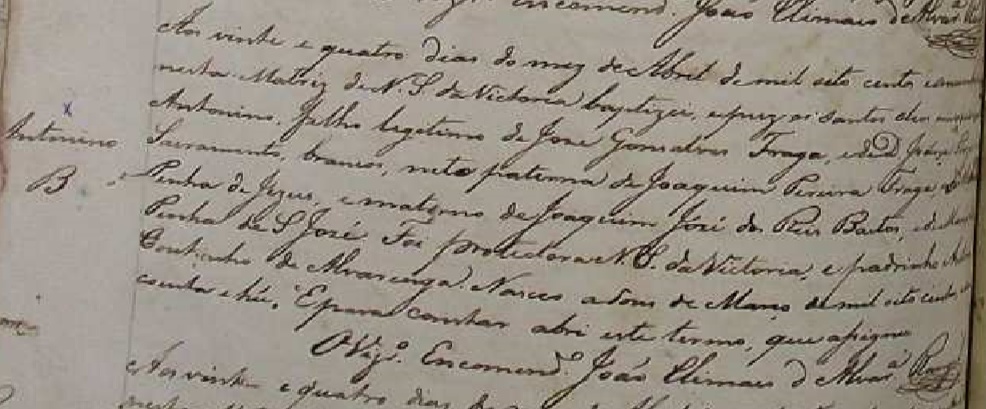 Encomend.º João Climaco de Alvar.ª
Aos vinte e quatro dias do mez de Abril de mil oito centos
nesta Matriz de N. S. da Victoria baptizei, e puz os Santos oleos
Antonino, filho legitimo de Jose Gonsalves Fraga, e de D.
Antonino
Sacramento, brancos, neto paterno de Joaquim Pereira Fraga, e
B
Penha de Jezus, e materno de Joaquim José dos Reis Bastos, e de
Penha de S. José. Foi protectora N. S. da Victoria, e padrinho
Coutinho de Alvarenga. Nasceo a dous de Março de mil oito centos
coenta e hū. E para constar abri este termo, que assignei
O Vig.º Encomend.º João Climaco d'Alvar.ª
Aos vinte e quatro dias
nesta